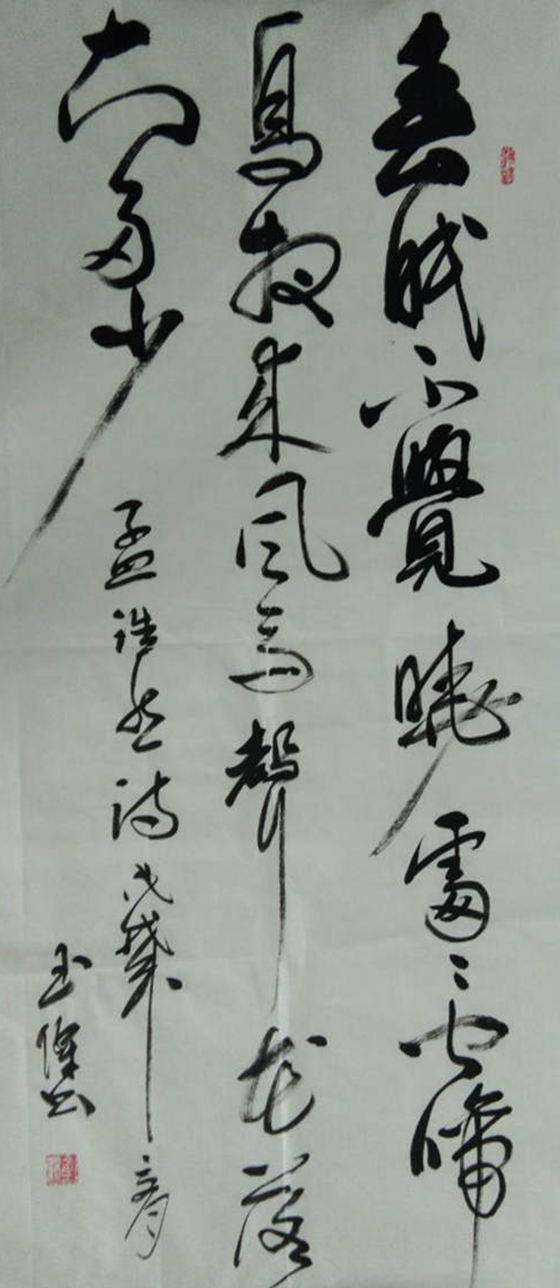 春眠不覺曉處々聞啼
鳥夜来風雨聲花落
知多少
孟浩然詩戊戌年
玉偉書